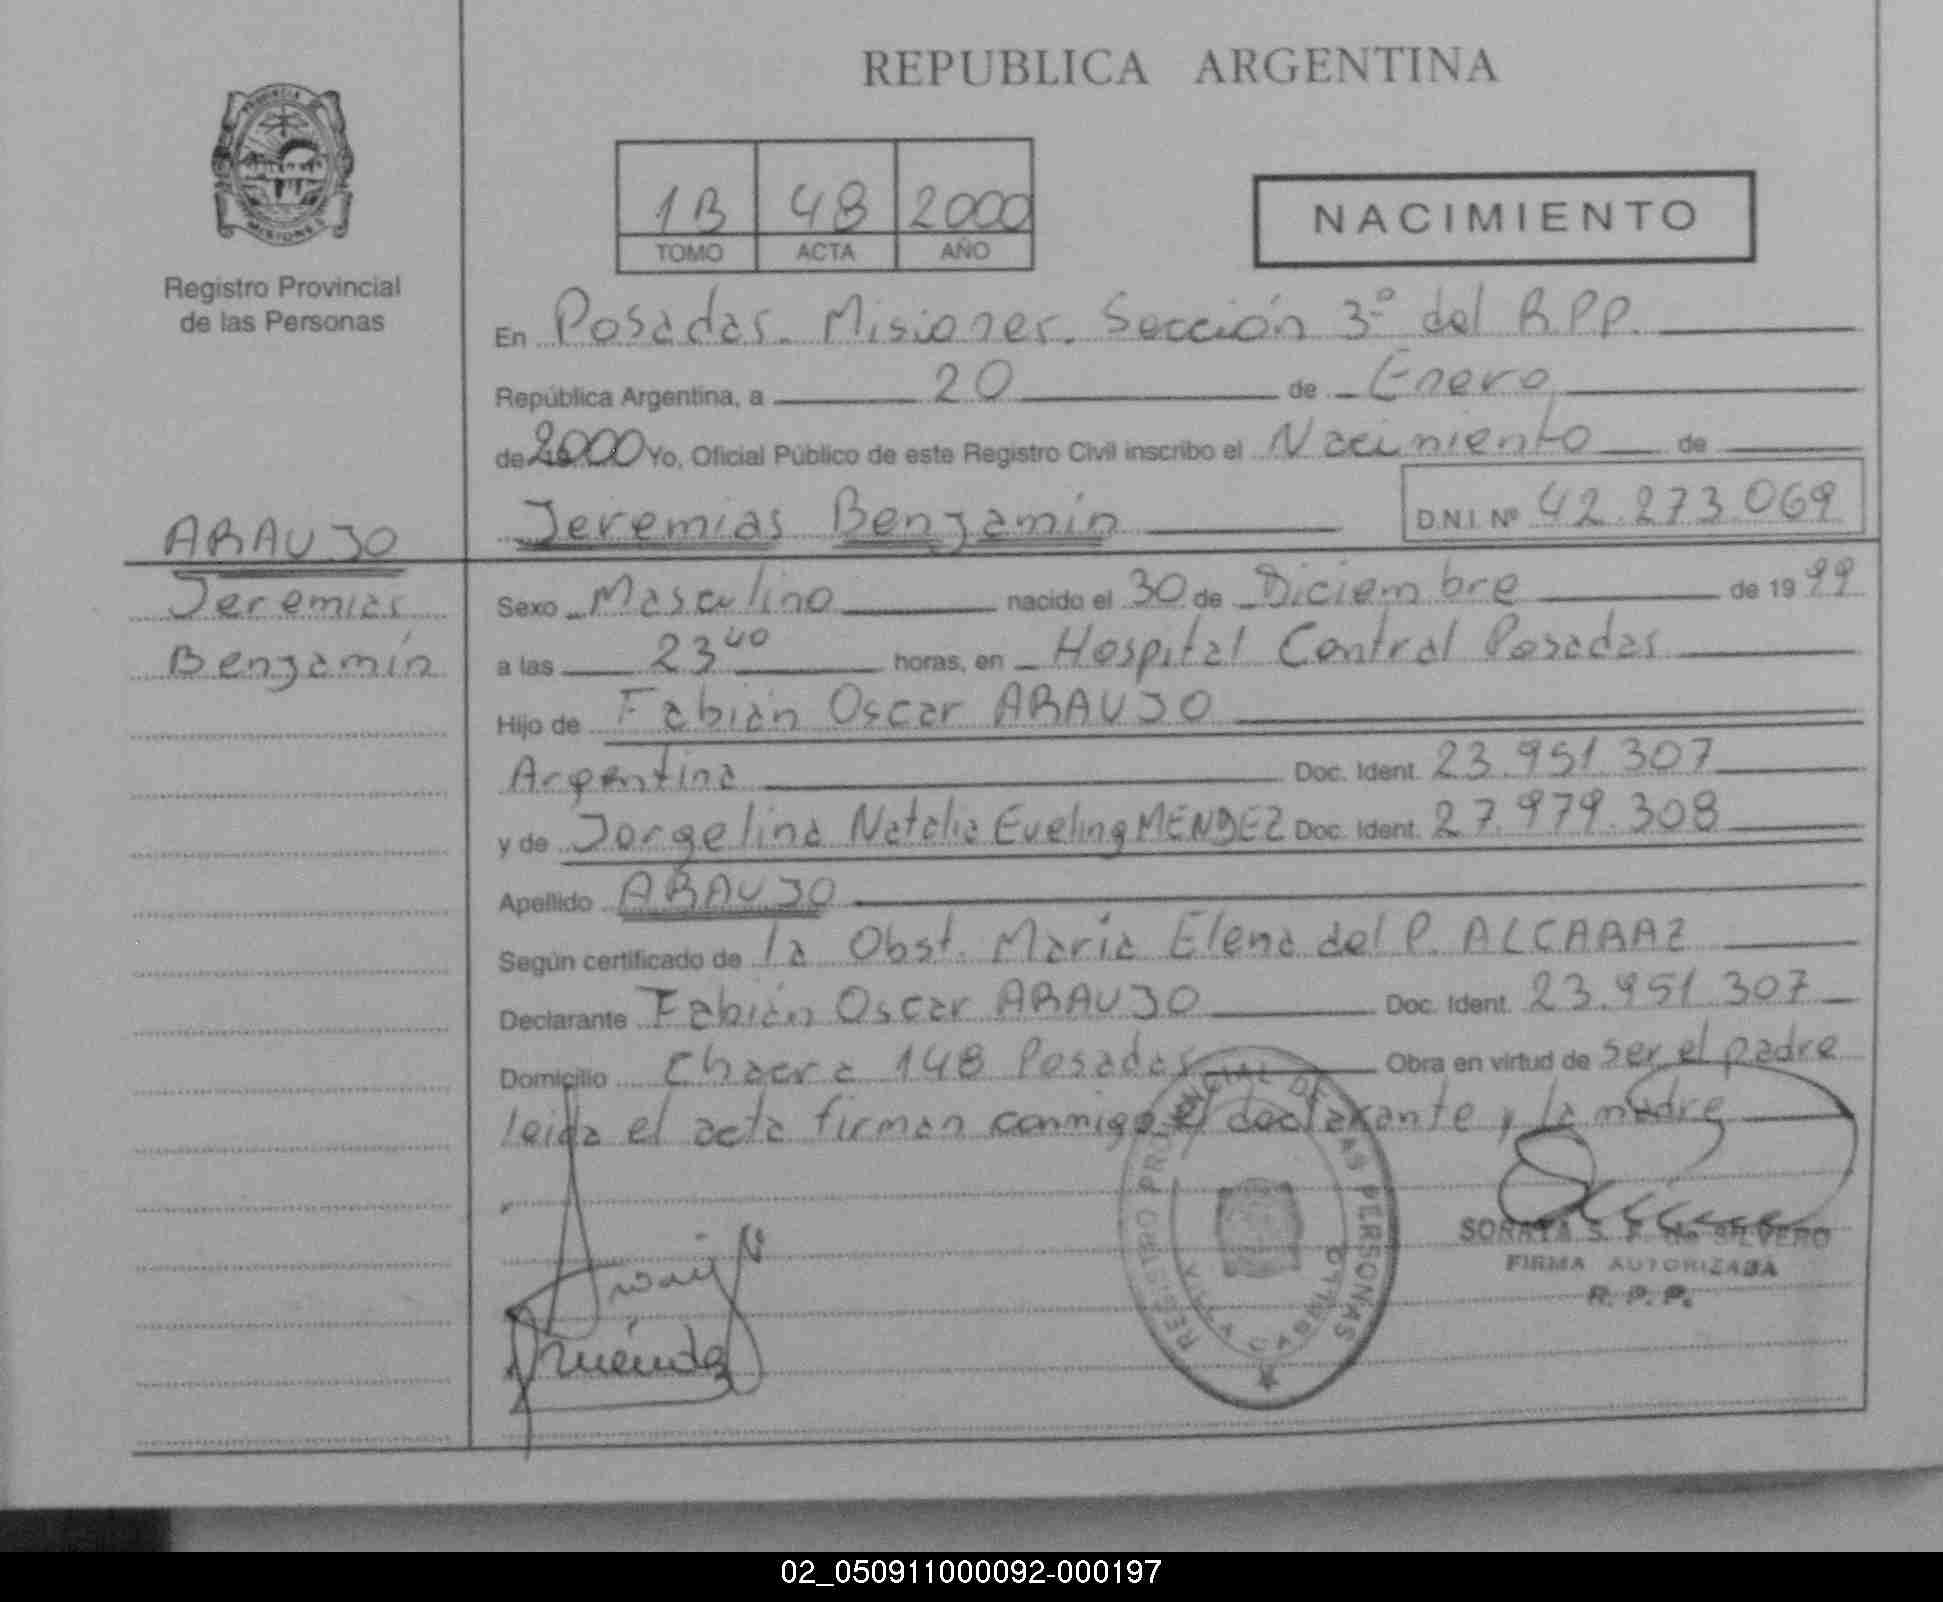 REPUBLICA ARGENTINA
PROVINCIA
MISIONES
Registro Provincial
de las Personas
1B 48 2000
TOMO ACTA AÑO
NACIMIENTO
En Posadas. Misiones. Sección 3º del R.P.P.
República Argentina, a 20 de Enero
de 2000 Yo, Oficial Público de este Registro Civil inscribo el Nacimiento de
Jeremias Benjamín D.N.I. Nº 42.273.069
ARAUJO
Jeremias
Benjamín
Sexo Masculino nacido el 30 de Diciembre de 1999
a las 23 40 horas, en Hospital Central Posadas
Hijo de Fabián Oscar ARAUJO
Argentina Doc. Ident. 23.951.307
y de Jorgelina Natalia Eveling MÉNDEZ Doc. Ident. 27.979.308
Apellido ARAUJO
Según certificado de la Obst. María Elena del P. ALCARAZ
Declarante Fabián Oscar ARAUJO Doc. Ident. 23.951.307
Domicilio Chacra 148 Posadas Obra en virtud de ser el padre
leida el acta firman conmigo el declarante y la madre
REGISTRO PROVINCIAL DE LAS PERSONAS
VILLA CABELLO
SORAYA S. de SILVERO
FIRMA AUTORIZADA
R. P. P.
02_050911000092-000197